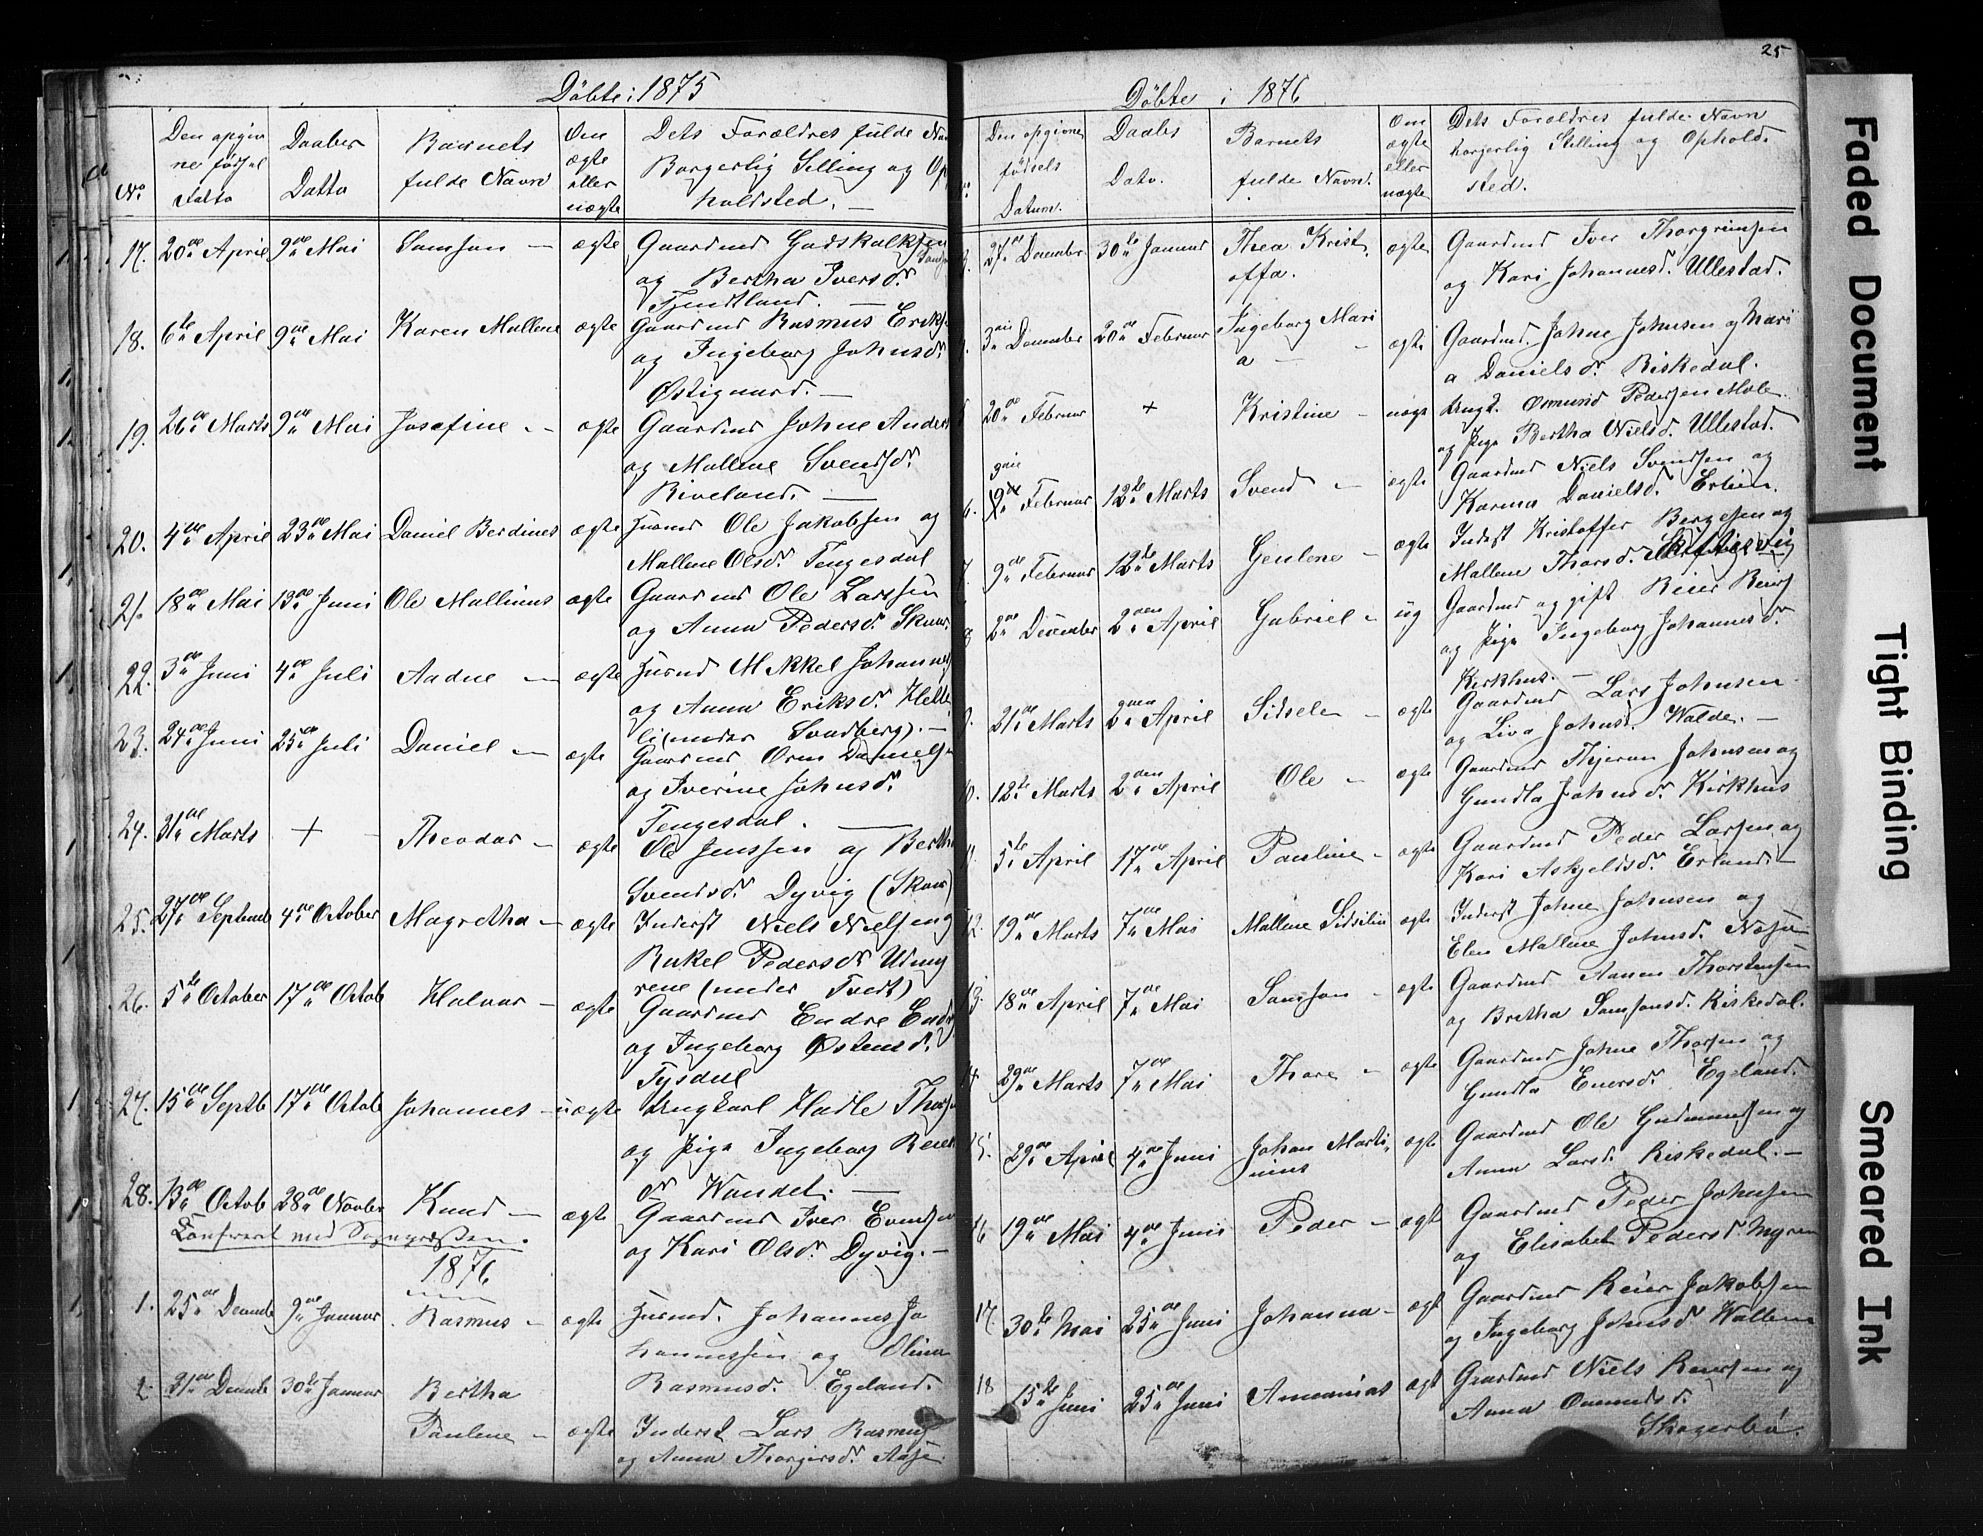 25
Döbte i 1875
No
Den opgivne fødsel Datto
Daabes Datto
Barnets fulde Navn
Om ægte eller uægte
Dets Forældres fulde Navn
Borgerlig Stilling og Op
holdsted. —
17. 20de April 9de Mai Samson — ægte Gaardmd Gudskalksen
og Bertha Iversdr.
Tjendtland. —
18. 6te April 9de Mai Karen Mallene ægte Gaardmd Rasmus Eriks
og Ingeborg Johnsdr.
Østiguard. —
19. 26de Marts 9de Mai Josefine — ægte Gaardmd Johne Anders
og Mallene Svendsdr.
Riveland. —
20. 4de April 23de Mai Daniel Berdines ægte Husmd Ole Jakobsen og
Mallene Olsdr. Tengesdal
21. 18de Mai 13de Juni Ole Mallinus ægte Gaardmd Ole Larssen
og Anna Pedersdr. Skaar
22. 3de Juni 4de Juli Aadne — ægte Husmd Mikkel Johannes
og Anna Eriksdr. Helle
li (under Sandberg). —
23. 24de Juni 25de Juli Daniel — ægte Gaardmd Orm Danielsen
og Iverine Johnsdr.
Tengesdal. —
24. 31de Marts + Theodor — ægte Ole Jenssen og Bertha
Svendsdr. Dyvig (Skaar)
25. 27de Septemb 4de October Magretha — ægte Inderst Niels Nielsen og
Rakel Pedersdr. Udmyr
rene (under Tvedt)
26. 5te October 17de Octob Halvar — ægte Gaardmd Endre Endr
og Ingeborg Østensdr.
Tysdal
27. 15de Septb 17de Octob Johannes — uægte Ungkarl Hadle Thors
og Pige Ingeborg Reier
dr Wandet. —
28. 13de Octob 28de Novbr Knud — ægte Gaardmd Iver Evensen
og Kari Olsdr. Dyvig. —
Konfereret med Sognepræsten.
1876
1. 25de Decemb 9de Januar Rasmus — ægte Husmd. Johannes Jo
hannessen og Olina
Rasmusd. Egeland.
2. 31de Decemb 30te Januar Bertha
Pauline — ægte Inderst Lars Rasmus
og Anna Thorgersdr. Aase
Döbte i 1876
Den opgivne fødsels Datum.
Daabs Dato.
Barnets fulde Navn.
Om ægte eller uægte
Dets Forældres fulde Navn
borgerlig Stilling og Opholds
sted.
3. 27de December 30te Januar Thea Krist
offa. ægte Gaardmd Iver Thorgrimsen
og Kari Johannesd. Ullestad.
4. 3die December 20de Februar Ingeborg Mari
a — ægte Gaardmd. Johne Johnsen og Mari
a Danielsdr. Riskedal.
5. 20de Februar + Kristine — uægt Ungk. Omund Pedersen Mæle
og Pige Bertha Nielsd. Ullestad.
6. 3die Februar 12te Marts Svend — ægte Gaardmd Niels Svendsen og
Karna Danielsd. Erlien.
7. 9de Februar 12te Marts Genlene — ægte Inderst Kristoffer Bergesen og
Mallene Thorsd.
8. 2den December 2den April Gabriel — uæg Gaardmd og gift Reier Reiers
og Pige Ingeborg Johannesdr.
Kirkhus. —
9. 21de Marts 2den April Sidsele — ægte Gaardmd Lars Johnsen
og Liva Johnsd. Walde. —
10. 12te Marts 2den April Ole — ægte Gaardmd Thjeran Johnsen og
Gundla Johnsdr. Kirkhus
11. 5te April 17de April Pauline — ægte Gaardmd Peder Larsen og
Kari Askjeldsdr. Erland. —
12. 19de Marts 7de Mai Mallene Sidselin ægte Inderst Johne Johnsen og
Elen Mallene Johnsd.
13. 18de April 7de Mai Samson — ægte Gaardmd Aanen Thorstensen
og Bretha Samsonsd. Riskedal.
14. 29de Marts 7de Mai Thore — ægte Gaardmd Johne Thorsen og
Gundla Enersd. Egeland.
15. 29de April 4de Juni Johan Marti
nius ægte Gaardmd Ole Gudmundsen og
Anna Larsd. Riskedal. —
16. 19de Mai 4de Juni Peder — ægte Gaardmd Peder Johnsen
og Elisabet Pedersd.
17. 30te Mai 25de Juni Johanna — ægte Gaardmd Reier Jakobsen
og Ingeborg Johnsdr Wallem
18 15de Juni 25de Juni Annanias ægte Gaardmd Niels Reiersen og
Anna Omundsd.
Skogerbø.
Faded Document
Tight Binding
Smeared Ink